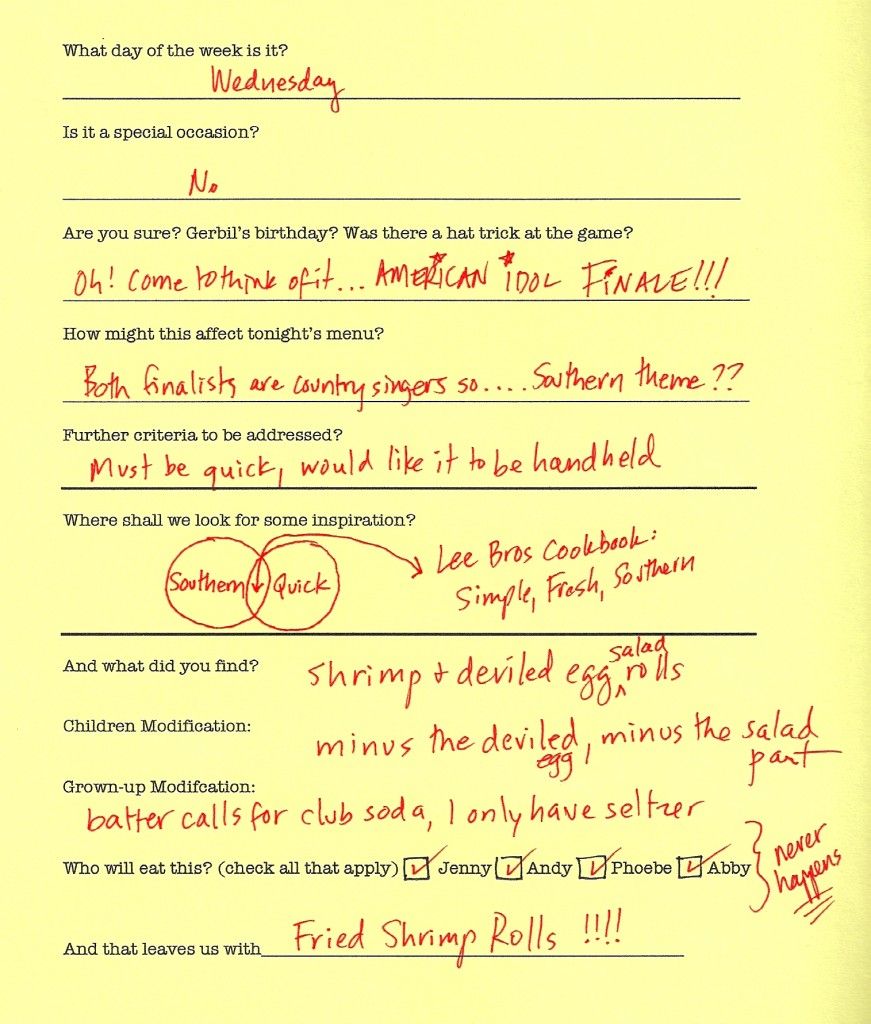 What day of the week is it?
Wednesday
Is it a special occasion?
No
Are you sure? Gerbil's birthday? Was there a hat trick at the game?
Oh! Come to think of it... AMERICAN IDOL FINALE!!!
How might this affect tonight's menu?
Both finalists are country singers so.... Southern theme??
Further criteria to be addressed?
Must be quick, would like it to be handheld
Where shall we look for some inspiration?
Southern Quick
Lee Bros Cookbook:
Simple, Fresh, Southern
And what did you find? shrimp + deviled egg salad rolls
Children Modification:
minus the deviled egg, minus the salad part
Grown-up Modifcation:
batter calls for club soda, I only have seltzer
Who will eat this? (check all that apply) Jenny Andy Phoebe Abby
never
happens
And that leaves us with Fried Shrimp Rolls !!!!